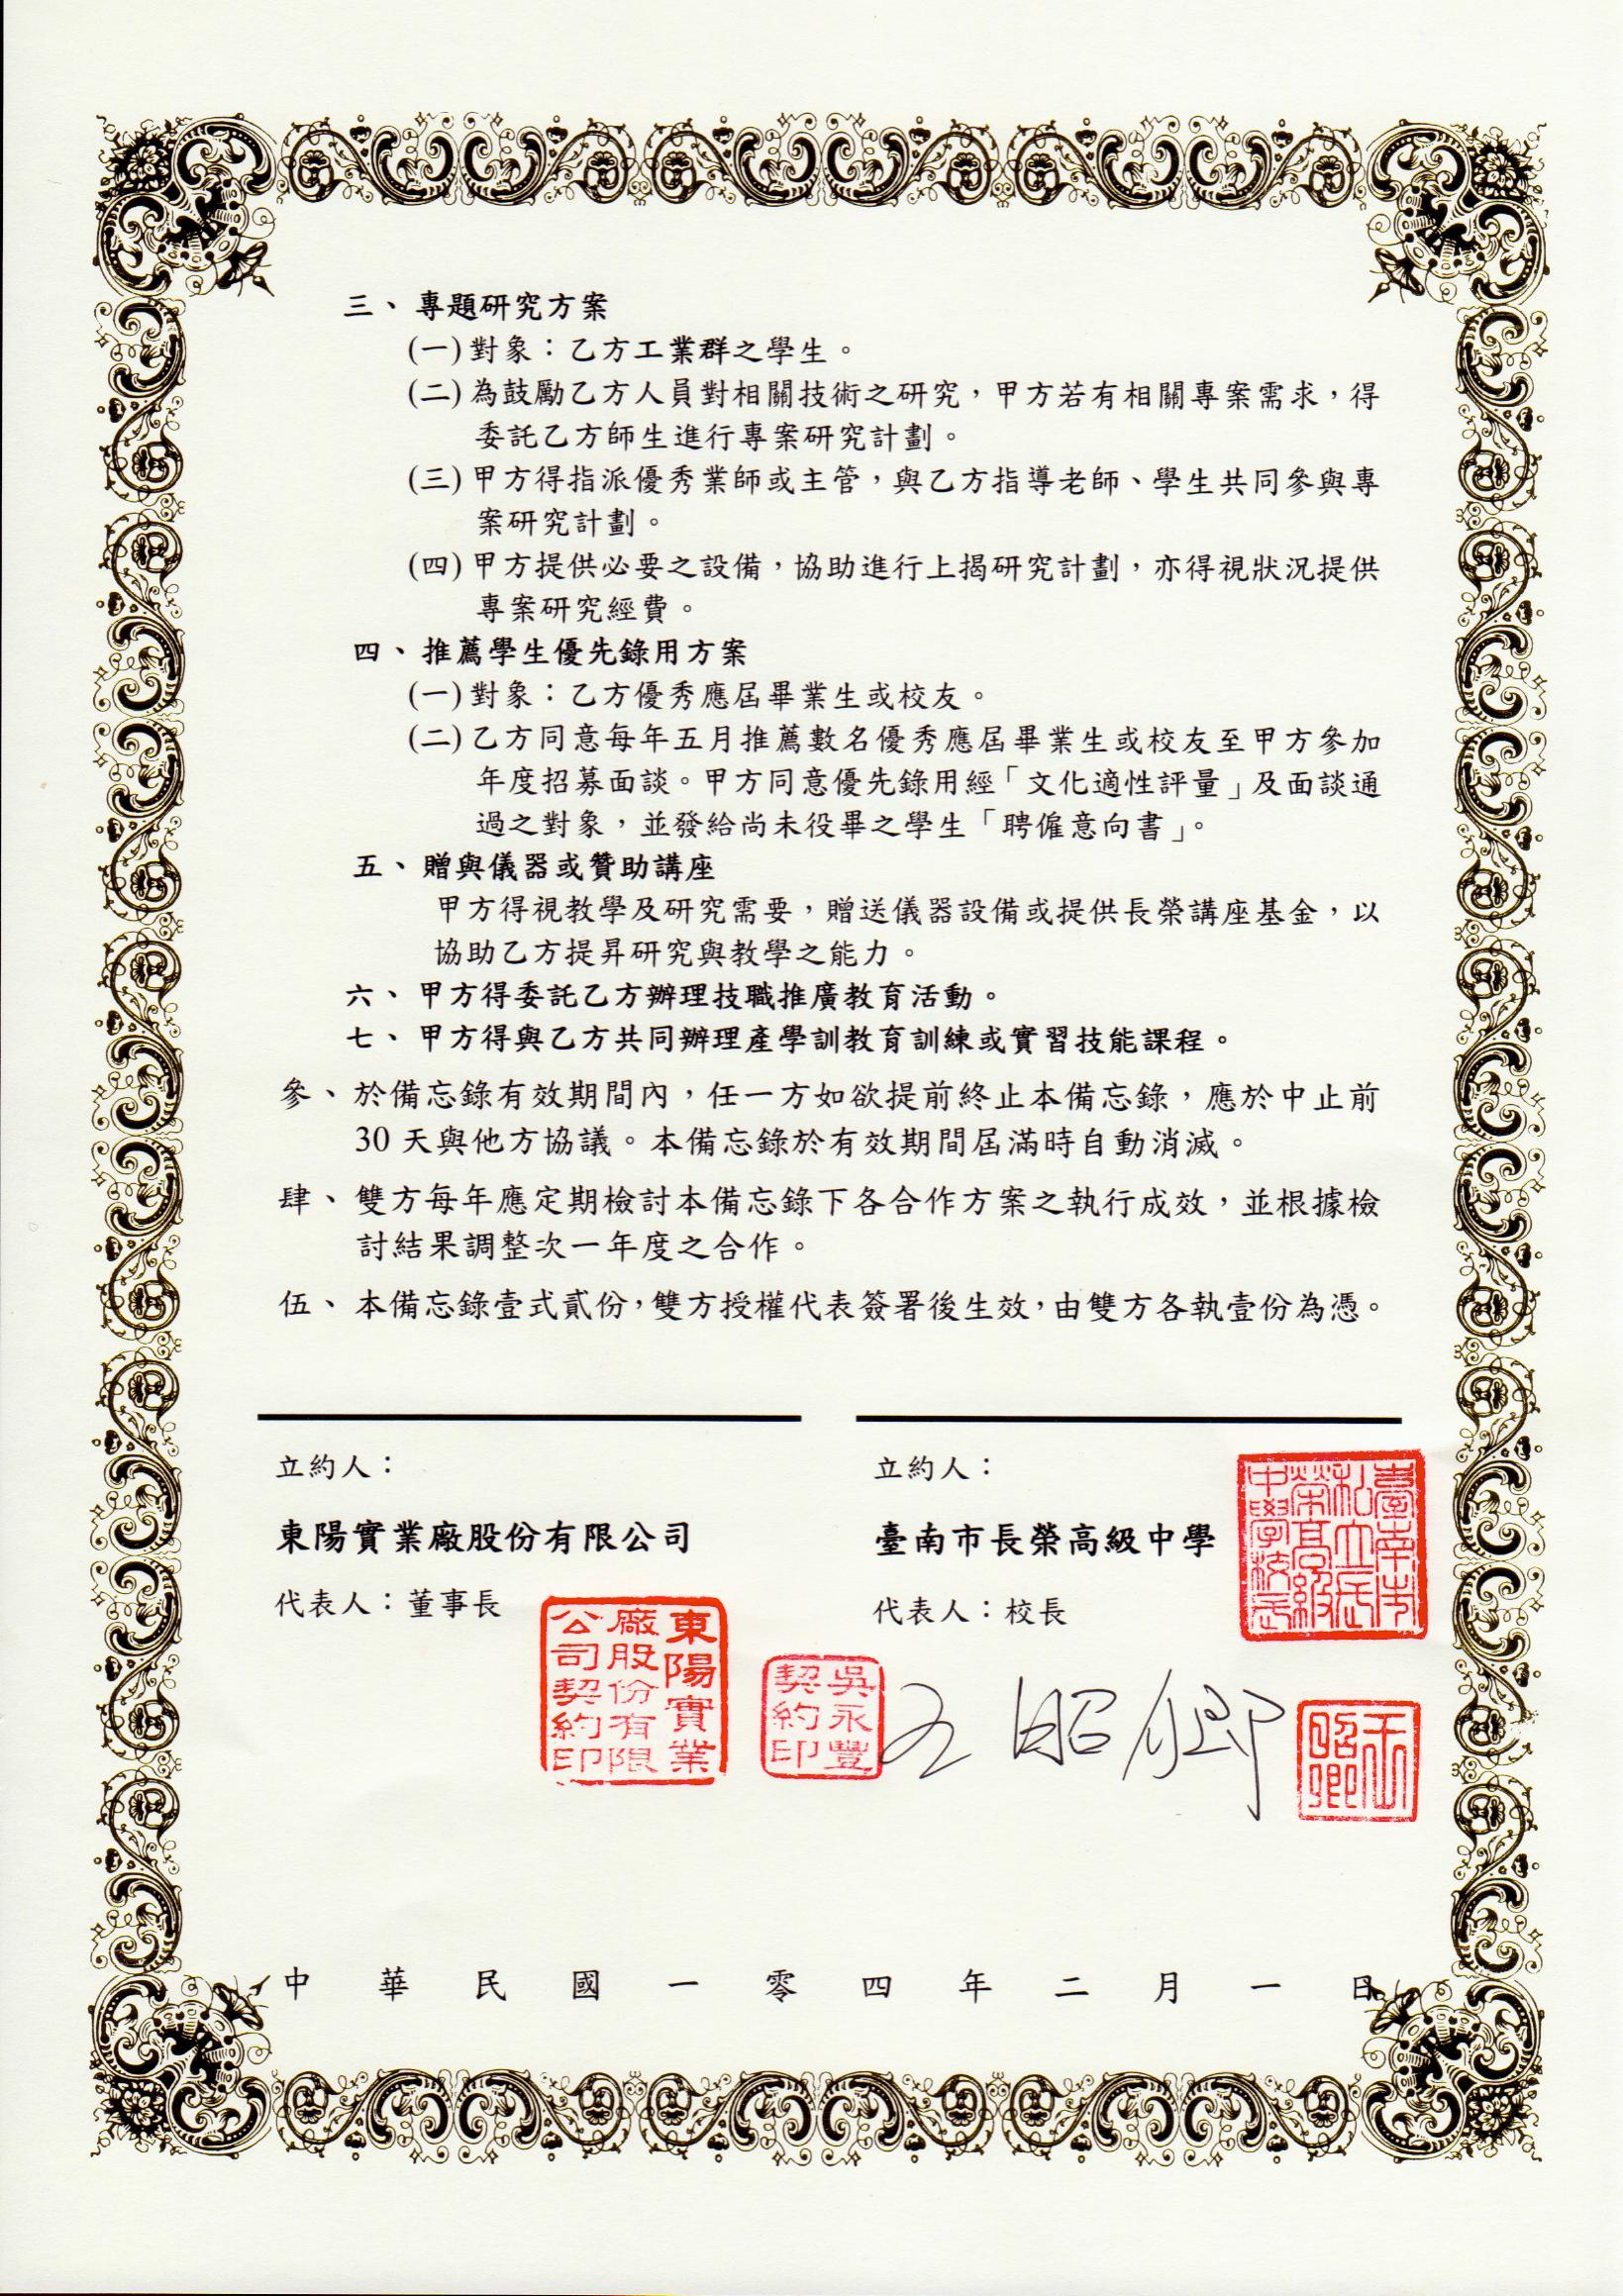 三、專題研究方案
(一)對象：乙方工業群之學生。
(二)為鼓勵乙方人員對相關技術之研究，甲方若有相關專案需求，得
委託乙方師生進行專案研究計劃。
(三)甲方得指派優秀業師或主管，與乙方指導老師、學生共同參與專
案研究計劃。
(四)甲方提供必要之設備，協助進行上揭研究計劃，亦得視狀況提供
專案研究經費。
四、推薦學生優先錄用方案
(一)對象：乙方優秀應屆畢業生或校友。
(二)乙方同意每年五月推薦數名優秀應屆畢業生或校友至甲方參加
年度招募面談。甲方同意優先錄用經「文化適性評量」及面談通
過之對象，並發給尚未役畢之學生「聘僱意向書」。
五、贈與儀器或贊助講座
甲方得視教學及研究需要，贈送儀器設備或提供長榮講座基金，以
協助乙方提昇研究與教學之能力。
六、甲方得委託乙方辦理技職推廣教育活動。
七、甲方得與乙方共同辦理產學訓教育訓練或實習技能課程。
參、於備忘錄有效期間內，任一方如欲提前終止本備忘錄，應於中止前
30 天與他方協議。本備忘錄於有效期間屆滿時自動消滅。
肆、雙方每年應定期檢討本備忘錄下各合作方案之執行成效，並根據檢
討結果調整次一年度之合作。
伍、本備忘錄壹式貳份，雙方授權代表簽署後生效，由雙方各執壹份為憑。
立約人：
東陽實業廠股份有限公司
代表人：董事長
東陽實業
廠股份有限
公司契約印
吳永豐
契約印
立約人：
臺南市長榮高級中學
代表人：校長
臺南市
私立長
榮高級
中學校長
王昭卿
王昭卿
中華民國一零四年二月一日